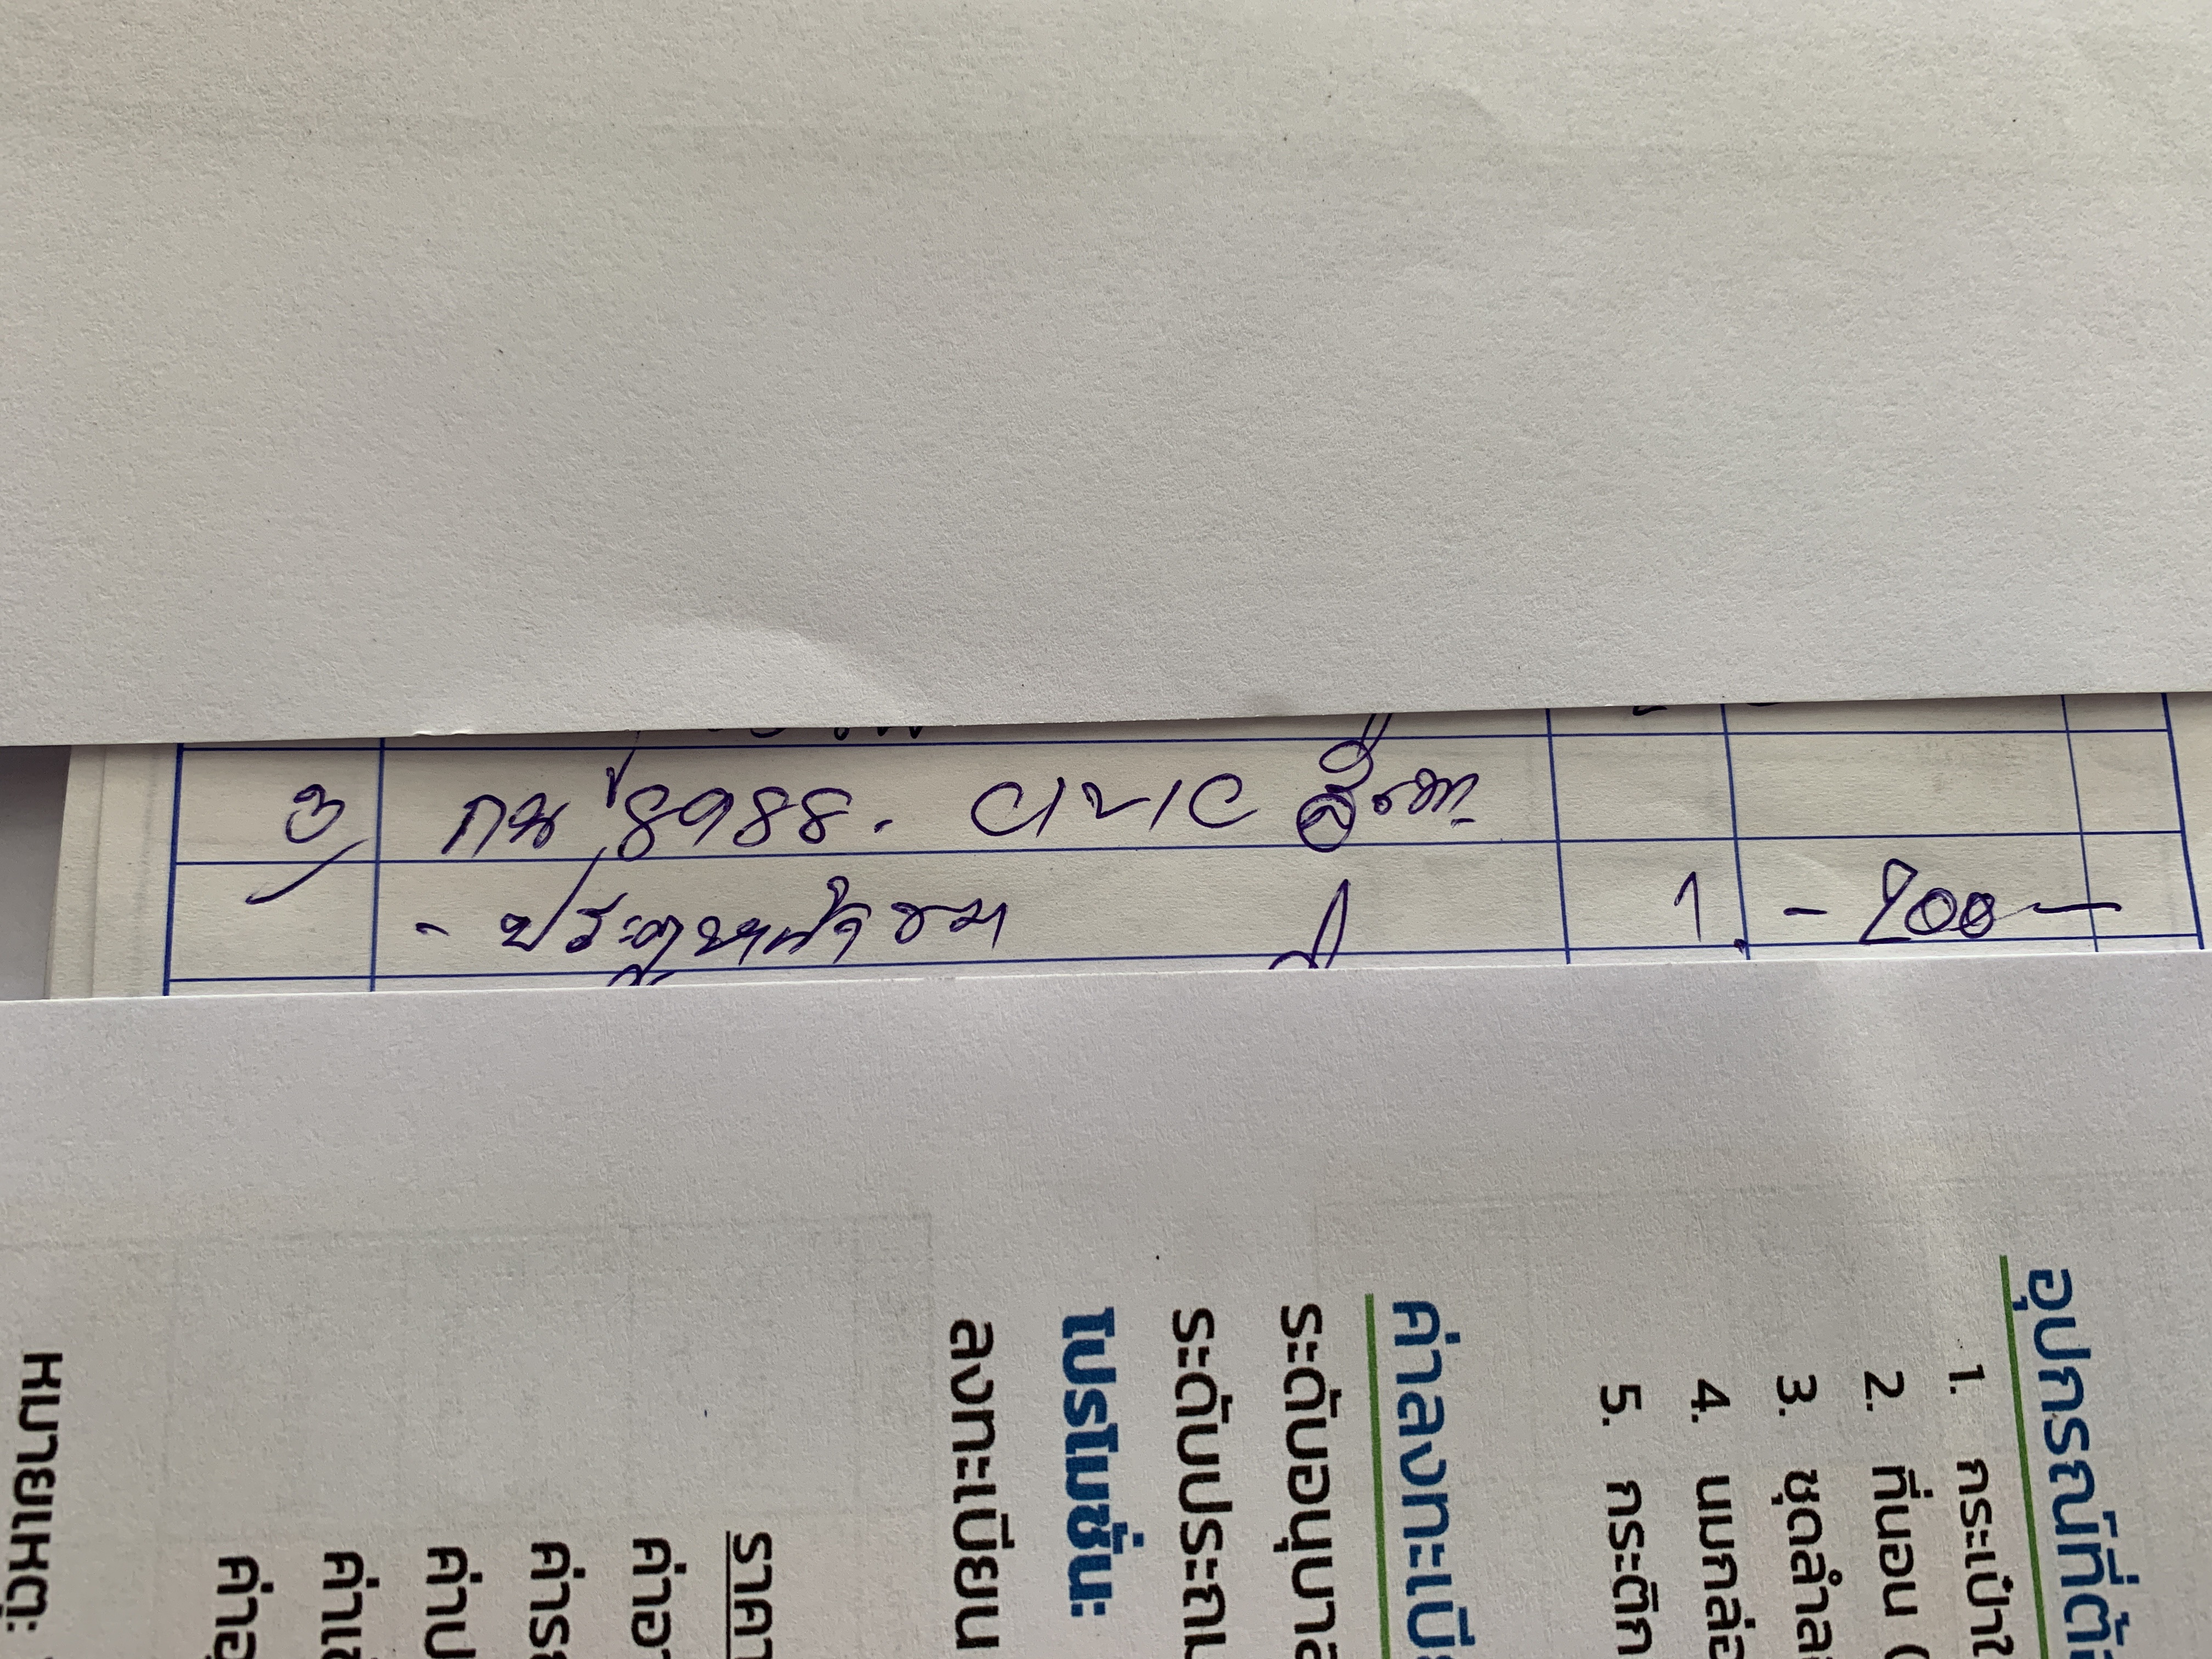 3 กน 8988. CIVIC สีเทา
- ประตูหน้าขวา 1 1. - 200 -
อุปกรณ์ที่ต้
1. กระเป๋าใ
2. ที่นอน (
3. ชุดลำลอ
4. นมกล่อ
5. กระติก
ค่าลงทะเบี
ระดับอนุบาล
ระดับประถม
โปรโมชั่น:
ลงทะเบียน
ราคา
ค่าอา
ค่าระ
ค่าป
ค่าเ
ค่าอุ
หมายเหตุ: